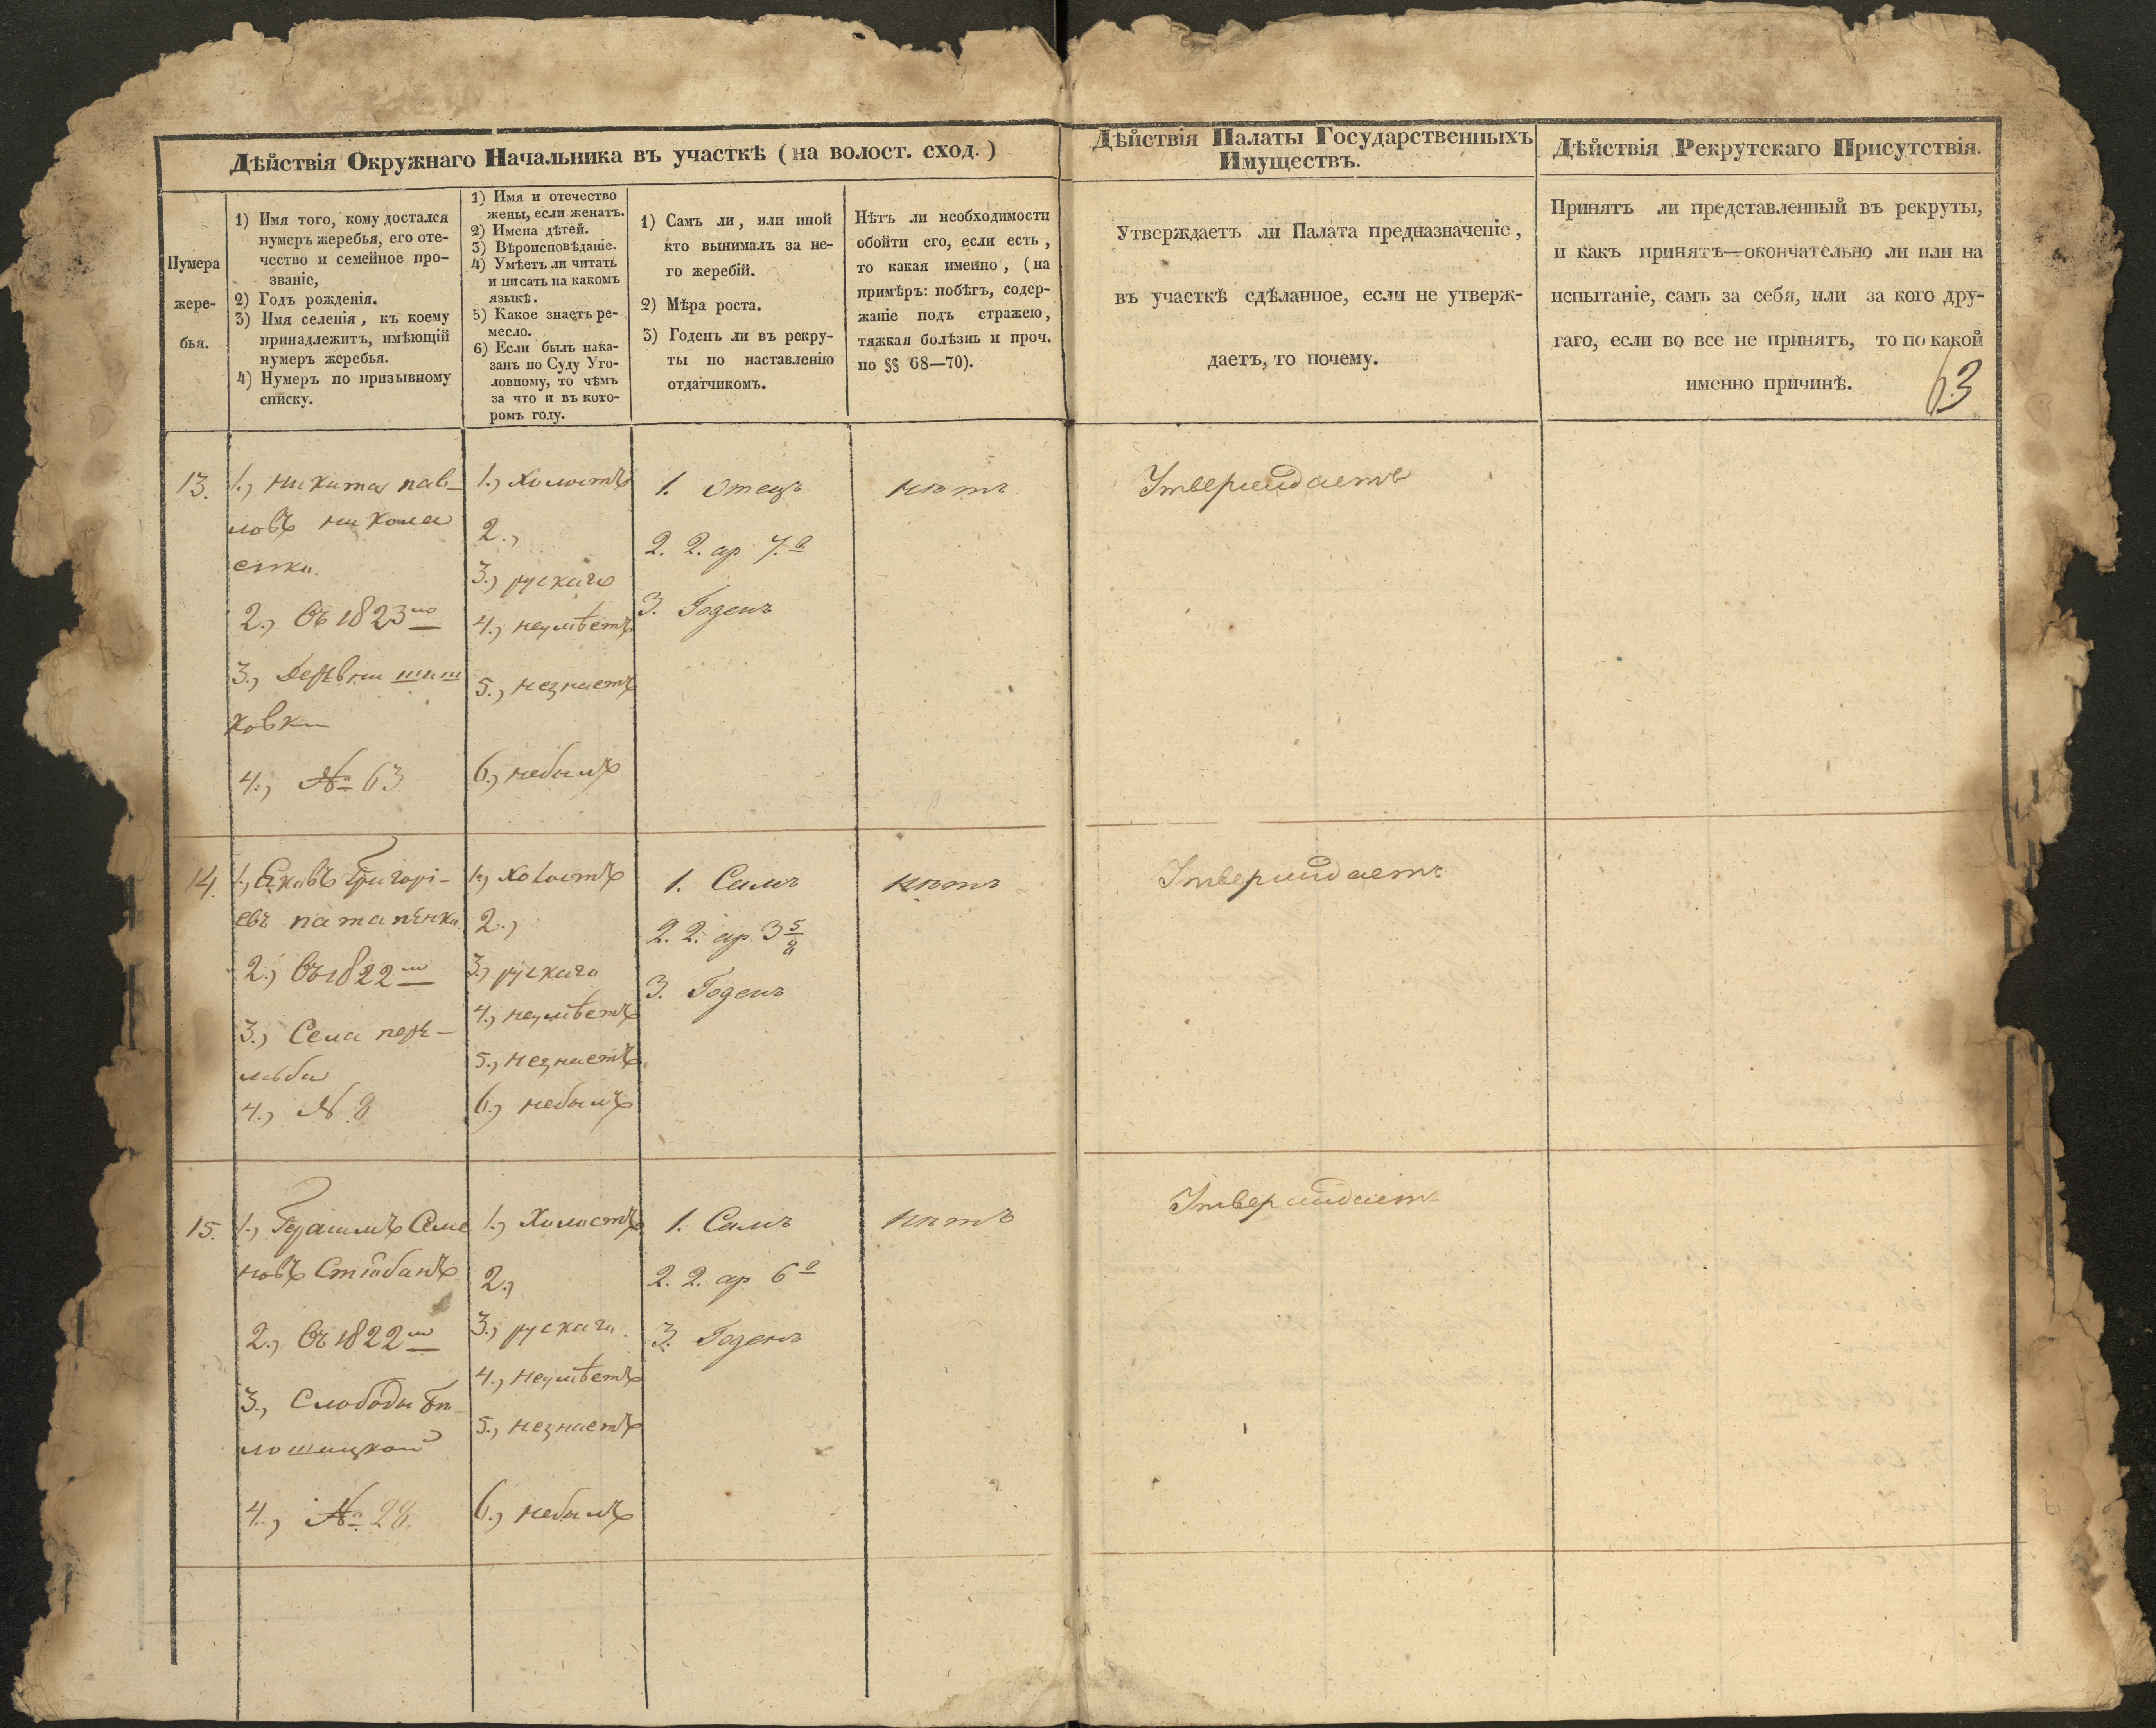 Дѣйствія Окружнаго Начальника въ участкѣ (на волост. сход.)
Нумера
жере-
бья.
1) Имя того, кому достался
нумеръ жеребья, его оте-
чество и семейное про-
званіе,
2) Годъ рожденія.
3) Имя селенія, къ коему
принадлежитъ, имѣющій
нумеръ жеребья.
4) Нумеръ по призывному
списку.
1) Имя и отечество
жены, если женатъ.
2) Имена дѣтей.
3) Вѣроисповѣданіе.
4) Умѣетъ ли читать
и писать на какомъ
языкѣ.
5) Какое знаетъ ре-
месло.
6) Если былъ нака-
занъ по Суду Уго-
ловному, то чѣмъ
за что и въ кото-
ромъ году.
1) Самъ ли, или иной
кто вынималъ за не-
го жеребій.
2) Мѣра роста.
3) Годенъ ли въ рекру-
ты по наставленію
отдатчикомъ.
Нѣтъ ли необходимости
обойти его, если есть,
то какая именно, (на
примѣръ: побѣгъ, содер-
жаніе подъ стражею,
тяжкая болѣзнь и проч.
по §§ 68—70).
Дѣйствія Палаты Государственныхъ
Имуществъ.
Утверждаетъ ли Палата предназначеніе,
въ участкѣ сдѣланное, если не утверж-
даетъ, то почему.
Дѣйствія Рекрутскаго Присутствія.
Принятъ ли представленный въ рекруты,
и какъ принятъ—окончательно ли или на
испытаніе, самъ за себя, или за кого дру-
гаго, если во все не принятъ, то по какой
именно причинѣ.
63
13.
1., никита пав-
ловъ никола
енка.
2., въ 1823 го
3., Деревни шиш
ковки
4., № 63
1., Холостъ
2.,
3., рускаго
4., неумѣетъ
5., незнаетъ
6., небылъ
1. Отецъ
2. 2. ар 7. в
3. Годенъ
нѣтъ
Утверждаетъ
14.
1., Яковъ Григорі-
евъ патапенко
2., въ 1822 го
3., Села пере-
любы
4., № 8
1., холостъ
2.,
3., рускаго
4., неумѣетъ
5., незнаетъ
6., небылъ
1. Самъ
2. 2. ар 3 5/8
3. Годенъ
нѣтъ
Утверждаетъ
15.
1., Герасимъ Семе
новъ
2., въ 1822 го
3., Слободы Бѣ-
лошицкой
4., № 28.
1., Холостъ
2.,
3., рускаго
4., неумѣетъ
5., незнаетъ
6., небылъ
1. Самъ
2. 2. ар 6 в
3. Годенъ
нѣтъ
Утверждаетъ